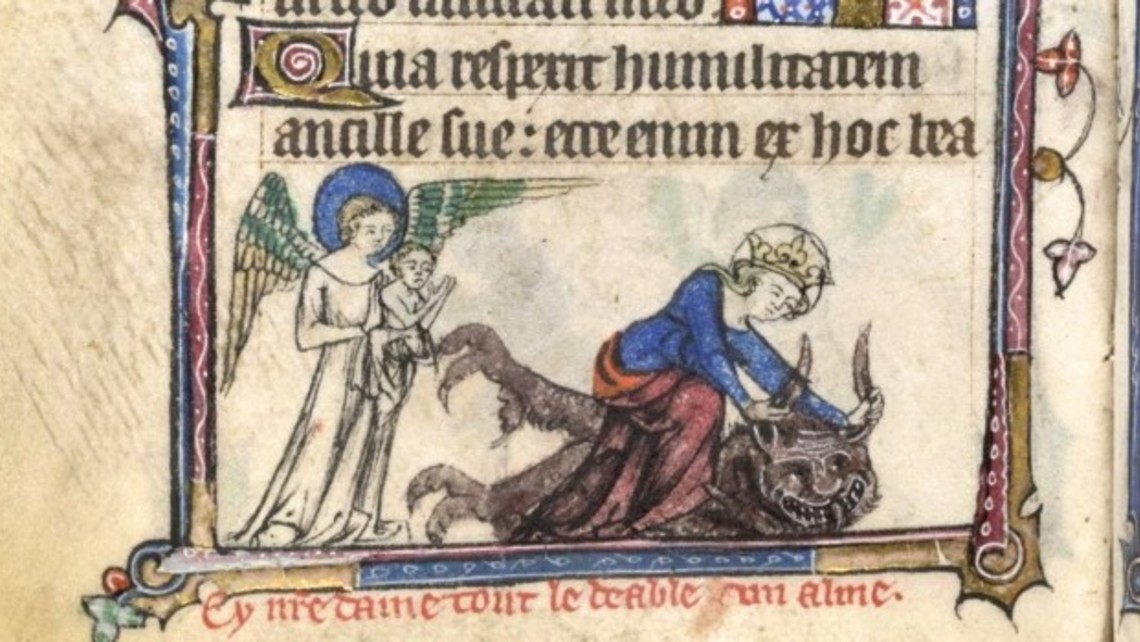 in deo salutari meo
Quia respexit humilitatem
ancille sue : ecce enim ex hoc bea
Cy nre dame tout le deable un alme.